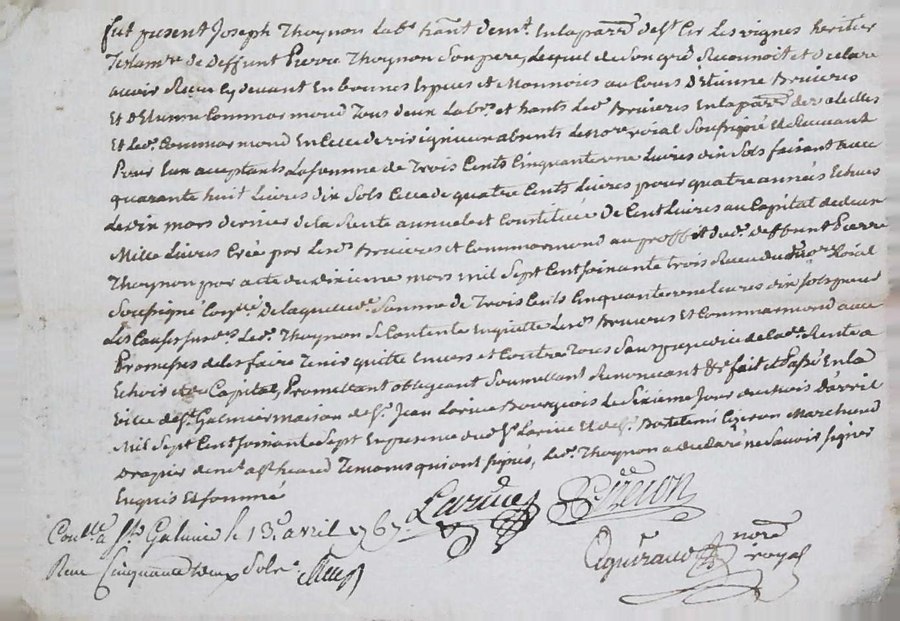 fut present Joseph Thoynon Labr. hant. demt. En la paroe. de st Cir Les vignes heritier
Testamre de deffunt Pierre Thoynon Son pere, Lequel de Son gré Reconnoit et declare
avoir Receu Cy devant En bonnes Espices et Monnoies au Cours D'Etienne Bruieres
Et d'Etienne Commarmond Tous deux Labrs. et hants Led. Bruieres En la paroe. de
Et Led. Commarmond En Celle de absents Le nore. roial Soussigné Et
Pour Eux acceptants La somme de Trois Cents Cinquante une Livres dix Sols faisant avec
quarante huit Livres dix Sols Celle de quatre Cents Livres pour quatre années Echues
Le dix mars dernier de la Rente annuelle et Constituée de Cent Livres au Capital de deux
Mille Livres Créé par Lesd. Bruieres et Commarmond au proffit dud. deffunt Pierre
Thoynon par acte du dixieme mars mil Sept Cent soixante trois Receu du nore. Roial
Soussigné De laquelle Somme de Trois Cents Cinquante une Livres dix sols pour
Les Causes susd. Led. Thoynon Se Contente En quitte Lesd. Bruieres Et Commarmond avec
Promesses de les faire Tenir quitte Envers et Contre Tous Sans prejudice de lade. Rente a
Echoir et du Capital, Promettant obligeant Soumettant Renoncant &c fait et Passé En la
Ville de St. Galmier maison de Sr. Jean Larive Bourgeois Le Sixieme Jour du mois D'avril
Mil Sept Cent soixante Sept En presence dud. Sr. Larive Et de Sr. Bartelemi Marchand
Drapier de Temoins qui ont signés, Led. Thoynon a declaré ne Savoir signer
Enquis Et sommé
Larive
Conllé. a St. Galmier le 13e. avril 1767
nore royal
Receu Cinquante deux Sols